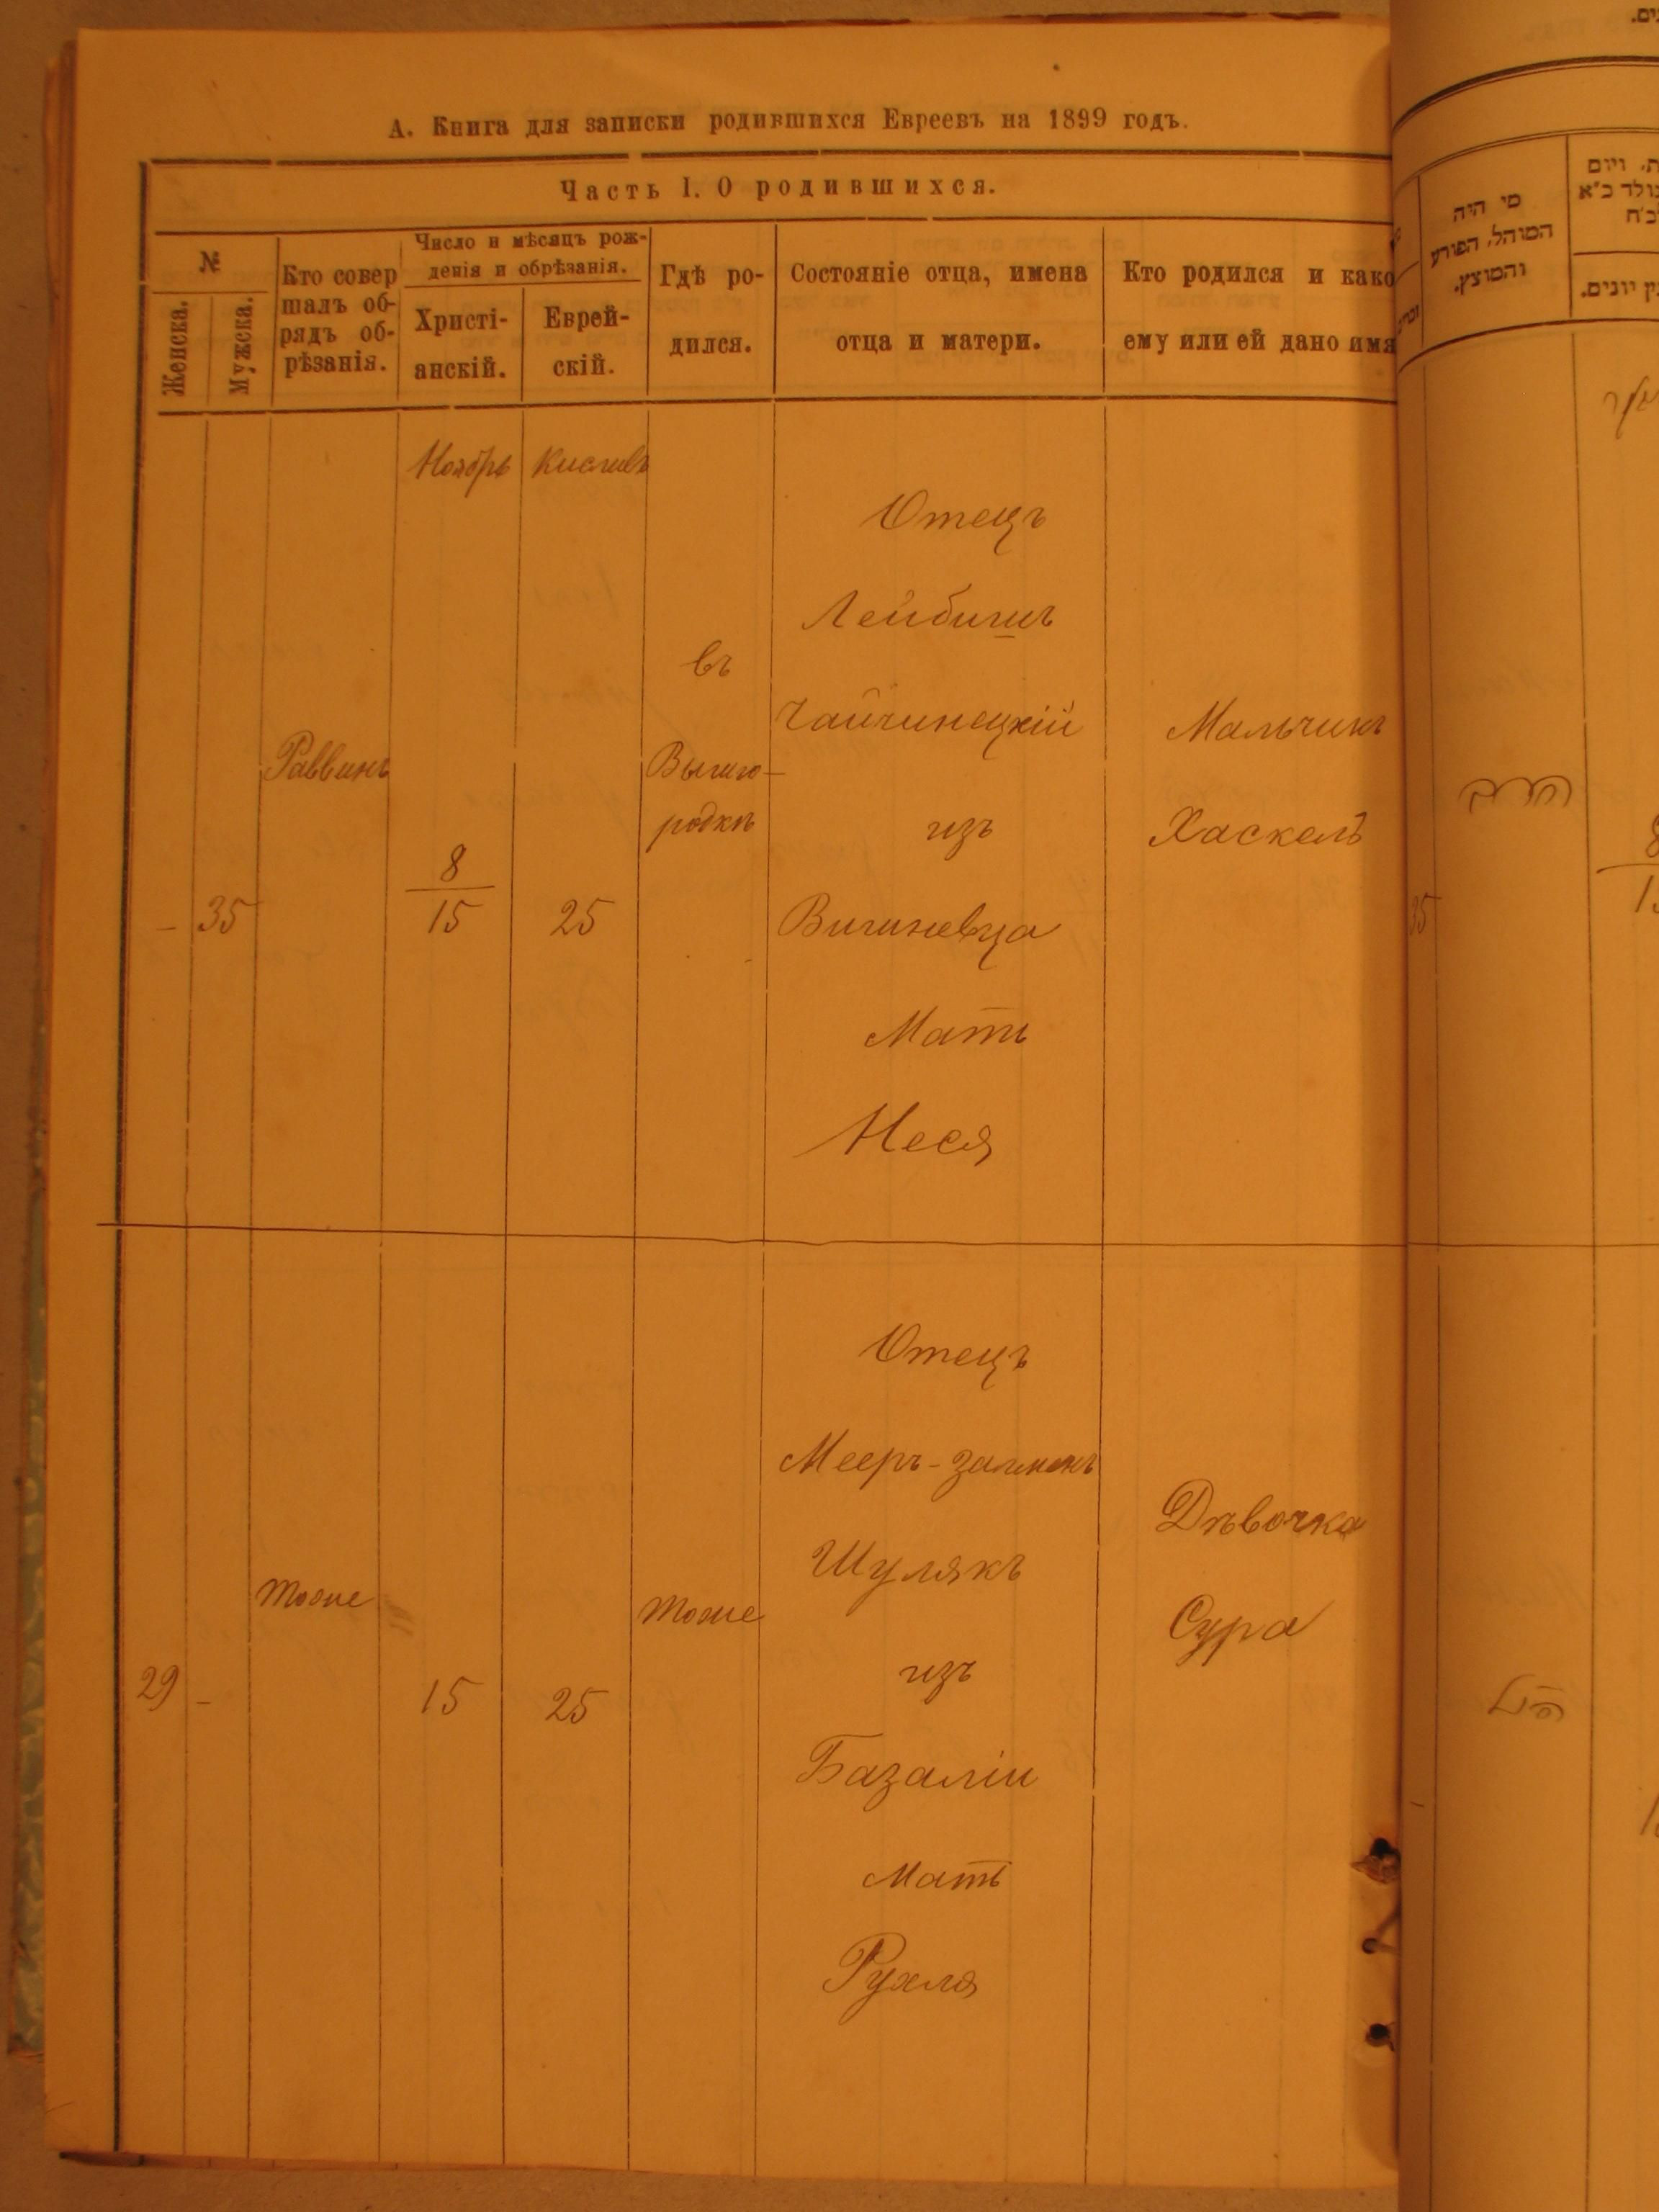 А. Книга для записки родившихся Евреевъ на 1899 годъ.
Часть I. О родившихся.
№
Женска.
Мужска.
Кто совер
шалъ об-
рядъ об-
рѣзанія.
Число и мѣсяцъ рож-
денія и обрѣзанія.
Христі-
анскій.
Еврей-
скій.
Гдѣ ро-
дился.
Состояніе отца, имена
отца и матери.
Кто родился и како
ему или ей дано имя
Ноябрь
Кислевъ
–
35
Раввинъ
8
15
25
въ
Вышго-
родкѣ
Отецъ
Лейбишъ
Чайчинецкій
изъ
Вишневца
Мать
Неся
Мальчикъ
Хаскель
29
–
тоже
15
25
тоже
Отецъ
Мееръ-залменъ
Шулякъ
изъ
Базаліи
Мать
Рухля
Дѣвочка
Сура
מי היה
המוהל, הפורע
והמוצץ.
ויום
יונים.
35
הרב